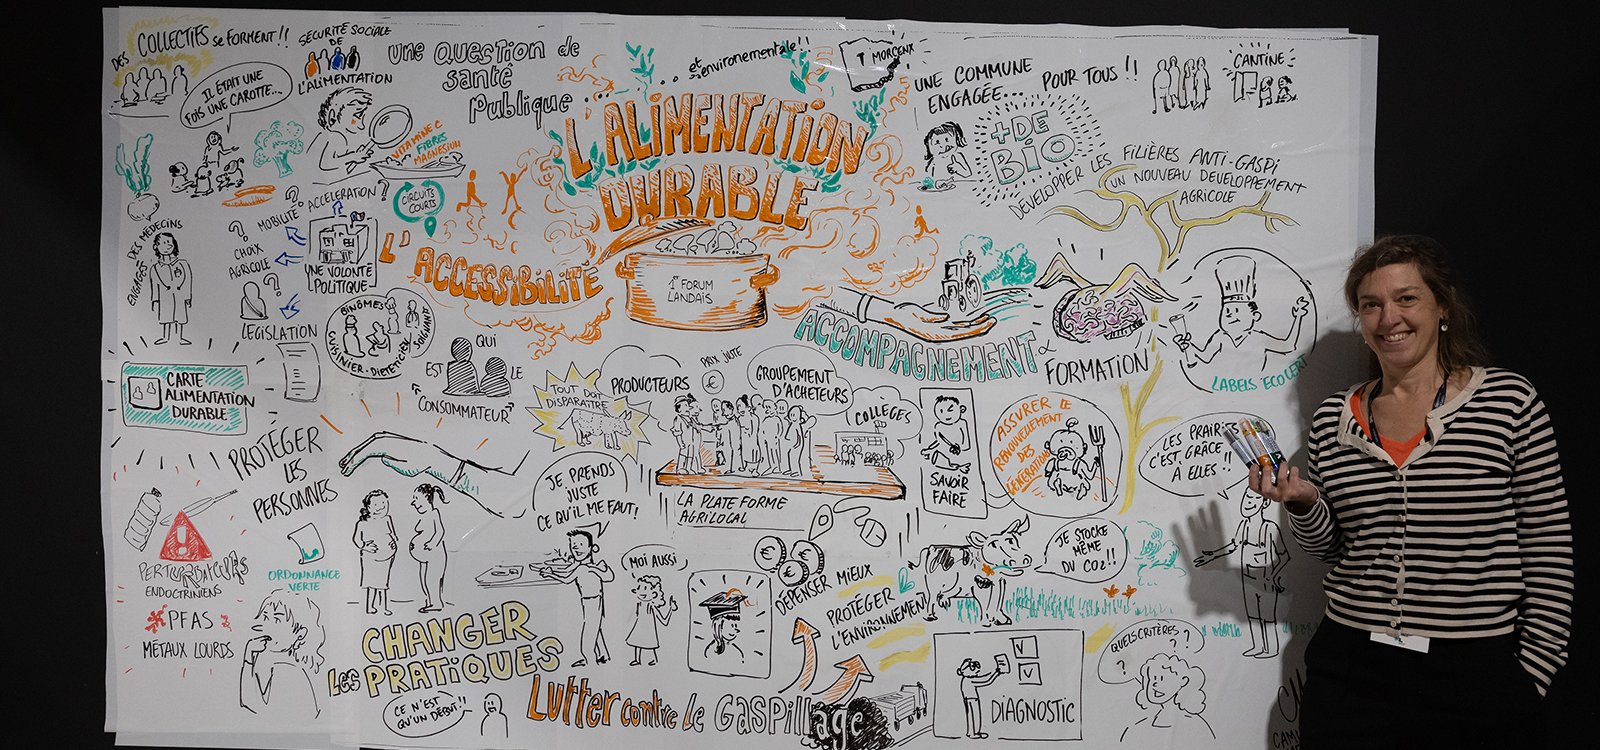 DES
COLLECTIFS se FORMENT !!
SÉCURITÉ SOCIALE
DE
L'ALIMENTATION
IL ÉTAIT UNE
FOIS UNE CAROTTE...
une question de
santé
publique...
... et environnementale !!
MORCENX
UNE COMMUNE
ENGAGÉE...
POUR TOUS !!
CANTINE
L'ALIMENTATION
DURABLE
1er FORUM
LANDAIS
VITAMINE C
FIBRES
MAGNESIUM
CIRCUITS
COURTS
+ DE
BIO
DEVELOPPER LES FILIÈRES ANTI-GASPI
UN NOUVEAU DEVELOPPEMENT
AGRICOLE
DES MÉDECINS
ENGAGÉS
ACCELERATION ?
MOBILITÉ ?
?
CHOIX
AGRICOLE
UNE VOLONTÉ
POLITIQUE
?
LEGISLATION
L'ACCESSIBILITÉ
BINÔMES
CUISINIER - DIETETICIEN
SOIGNANTS
QUI
EST
LE
"CONSOMMATEUR"
ACCOMPAGNEMENT &
FORMATION
LABELS ECOCERT
CARTE
ALIMENTATION
DURABLE
PROTÉGER
LES
PERSONNES
TOUT DOIT
DISPARAITRE
PRODUCTEURS
PRIX JUTE
€
GROUPEMENT
D'ACHETEURS
COLLÈGES
LA PLATE FORME
AGRILOCAL
SAVOIR
FAIRE
ASSURER LE
RENOUVELLEMENT
DES
GENERATIONS
LES PRAIRIES
C'EST GRÂCE
À ELLES !!
PERTURBATEURS
ENDOCTRINIENS
PFAS
MÉTAUX LOURDS
ORDONNANCE
VERTE
JE PRENDS
JUSTE
CE QU'IL ME FAUT !
MOI AUSSI
€ € €
DÉPENSER MIEUX
PROTÉGER
L'ENVIRONNEMENT
JE STOCKE
MÊME
DU CO2 !!
CHANGER
LES PRATIQUES
CE N'EST
QU'UN DÉBUT !!
Lutter contre le Gaspillage
DIAGNOSTIC
QUELS CRITÈRES ?
?
?